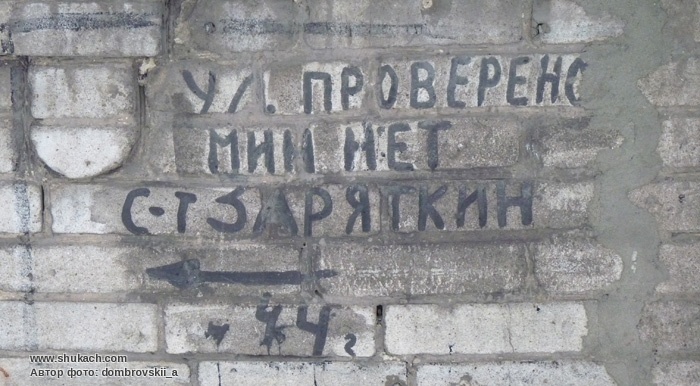 УЛ. ПРОВЕРЕНО
МИН НЕТ
С-Т ЗАРЯТКИН
44 г
www.shukach.com
Автор фото: dombrovskii_a